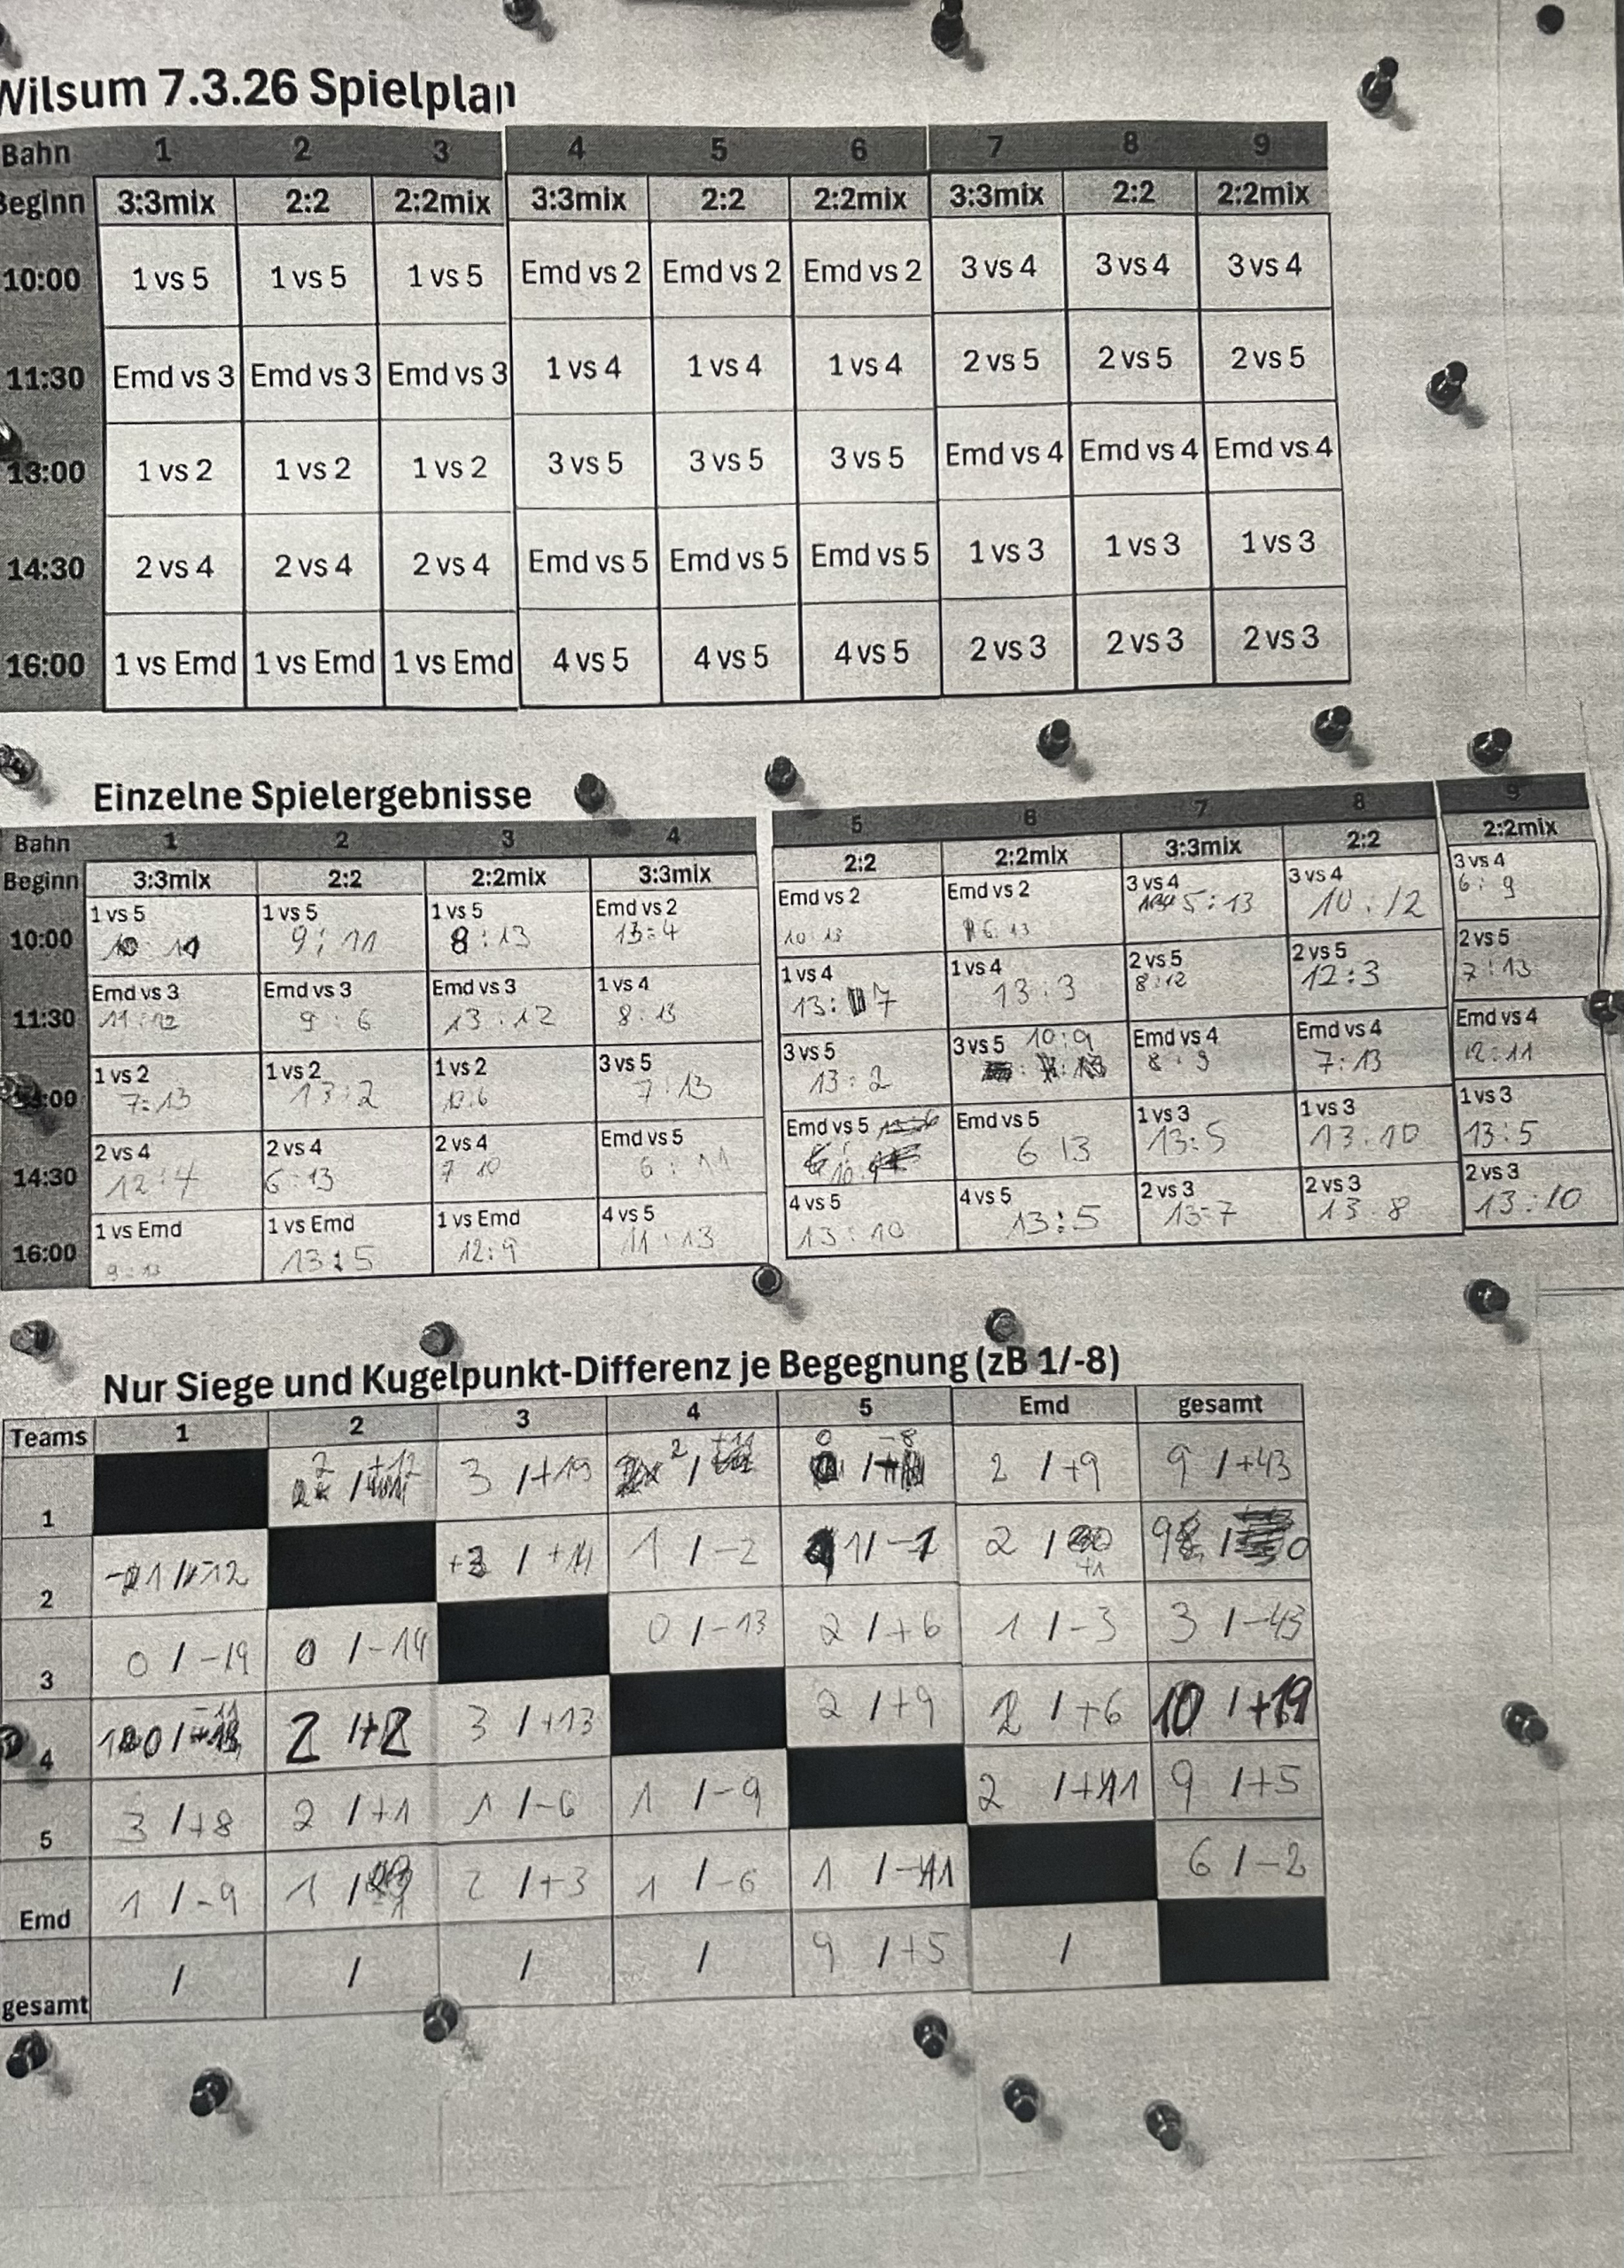 Wilsum 7.3.26 Spielplan
Bahn 1 2 3 4 5 6 7 8 9
Beginn 3:3mix 2:2 2:2mix 3:3mix 2:2 2:2mix 3:3mix 2:2 2:2mix
10:00 1 vs 5 1 vs 5 1 vs 5 Emd vs 2 Emd vs 2 Emd vs 2 3 vs 4 3 vs 4 3 vs 4
11:30 Emd vs 3 Emd vs 3 Emd vs 3 1 vs 4 1 vs 4 1 vs 4 2 vs 5 2 vs 5 2 vs 5
13:00 1 vs 2 1 vs 2 1 vs 2 3 vs 5 3 vs 5 3 vs 5 Emd vs 4 Emd vs 4 Emd vs 4
14:30 2 vs 4 2 vs 4 2 vs 4 Emd vs 5 Emd vs 5 Emd vs 5 1 vs 3 1 vs 3 1 vs 3
16:00 1 vs Emd 1 vs Emd 1 vs Emd 4 vs 5 4 vs 5 4 vs 5 2 vs 3 2 vs 3 2 vs 3
Einzelne Spielergebnisse
Bahn 1 2 3 4 5 6 7 8 9
Beginn 3:3mix 2:2 2:2mix 3:3mix 2:2 2:2mix 3:3mix 2:2 2:2mix
1 vs 5 1 vs 5 1 vs 5 Emd vs 2 Emd vs 2 Emd vs 2 3 vs 4 3 vs 4 3 vs 4
10:00 9:11 8:13 13:4 10:13 6:13 5:13 10:12 6:9
Emd vs 3 Emd vs 3 Emd vs 3 1 vs 4 1 vs 4 1 vs 4 2 vs 5 2 vs 5 2 vs 5
11:30 11:12 9:6 13:12 8:13 13:7 13:3 8:12 12:3 7:13
1 vs 2 1 vs 2 1 vs 2 3 vs 5 3 vs 5 3 vs 5 Emd vs 4 Emd vs 4 Emd vs 4
:00 7:13 13:2 7:13 13:2 10:9 8:9 7:13 12:11
2 vs 4 2 vs 4 2 vs 4 Emd vs 5 Emd vs 5 Emd vs 5 1 vs 3 1 vs 3 1 vs 3
14:30 12:4 6:13 7 10 6:11 6 13 13:5 13:10 13:5
1 vs Emd 1 vs Emd 1 vs Emd 4 vs 5 4 vs 5 4 vs 5 2 vs 3 2 vs 3 2 vs 3
16:00 9:13 13:5 12:9 11:13 13:10 13:5 13-7 13:8 13:10
Nur Siege und Kugelpunkt-Differenz je Begegnung (zB 1/-8)
Teams 1 2 3 4 5 Emd gesamt
1 2 /+12 3 /+19 2 /+11 0 /-8 2 /+9 9 /+43
2 1/-12 1 /-2 1/-1 2 / +1 9 / 0
3 0 /-19 0 /-14 0 /-13 2 /+6 1 /-3 3 /-43
4 /-11 2 /+2 3 /+13 2 /+9 2 /+6 10 /+19
5 3 /+8 2 /+1 1 /-6 1 /-9 2 /+11 9 /+5
Emd 1 /-9 1 /-1 2 /+3 1 /-6 1 /-11 6 /-2
gesamt / / / / 9 /+5 /